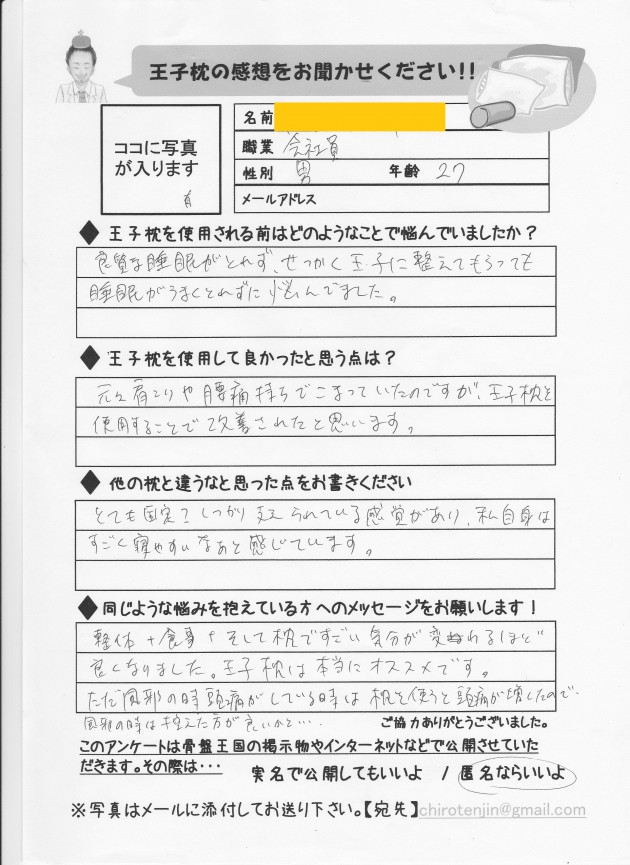 王子枕の感想をお聞かせください!!
ココに写真
が入ります
有
名前
職業 会社員
性別 男 年齢 27
メールアドレス
◆王子枕を使用される前はどのようなことで悩んでいましたか?
良質な睡眠がとれず、せっかく王子に整えてもらっても
睡眠がうまくとれずに悩んでました。
◆王子枕を使用して良かったと思う点は?
元々肩こりや腰痛持ちでこまっていたのですが、王子枕を
使用することで改善されたと思います。
◆他の枕と違うなと思った点をお書きください
とても固定されしっかり支えられている感覚があり、私自身は
すごく寝やすいなあと感じています。
◆同じような悩みを抱えている方へのメッセージをお願いします!
整体+食事+そして枕ですごい気分が変われるほど
良くなりました。王子枕は本当にオススメです。
ただ風邪の時頭痛がしている時は枕を使うと頭痛が増したので
風邪の時は控えた方が良いかと…。
ご協力ありがとうございました。
このアンケートは骨盤王国の掲示物やインターネットなどで公開させていた
だきます。その際は・・・ 実名で公開してもいいよ / 匿名ならいいよ
※写真はメールに添付してお送り下さい。【宛先】chirotenjin@gmail.com